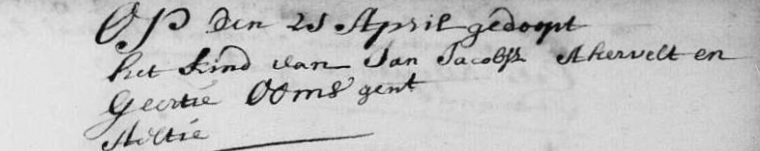 Op den 21 April gedoopt
het kind van Jan Jacobsz Akervelt en
Geertie Ooms gent
Aeltie